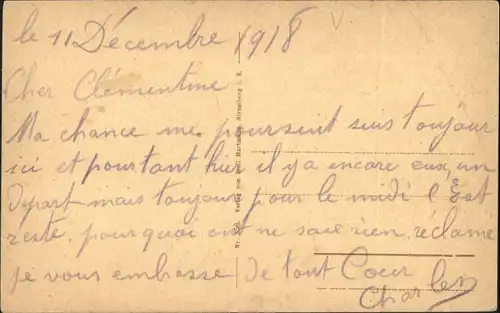 le 11 Décembre 1918
Cher Clémentine
Ma chance me poursuit suis toujour
ici et pourtant hier il y a encare eux un
Depart mais toujours pour le midi l'Est
reste. pourquoi ont ne sait rien, réclame
je vous embrasse de tout Cœur
Charles